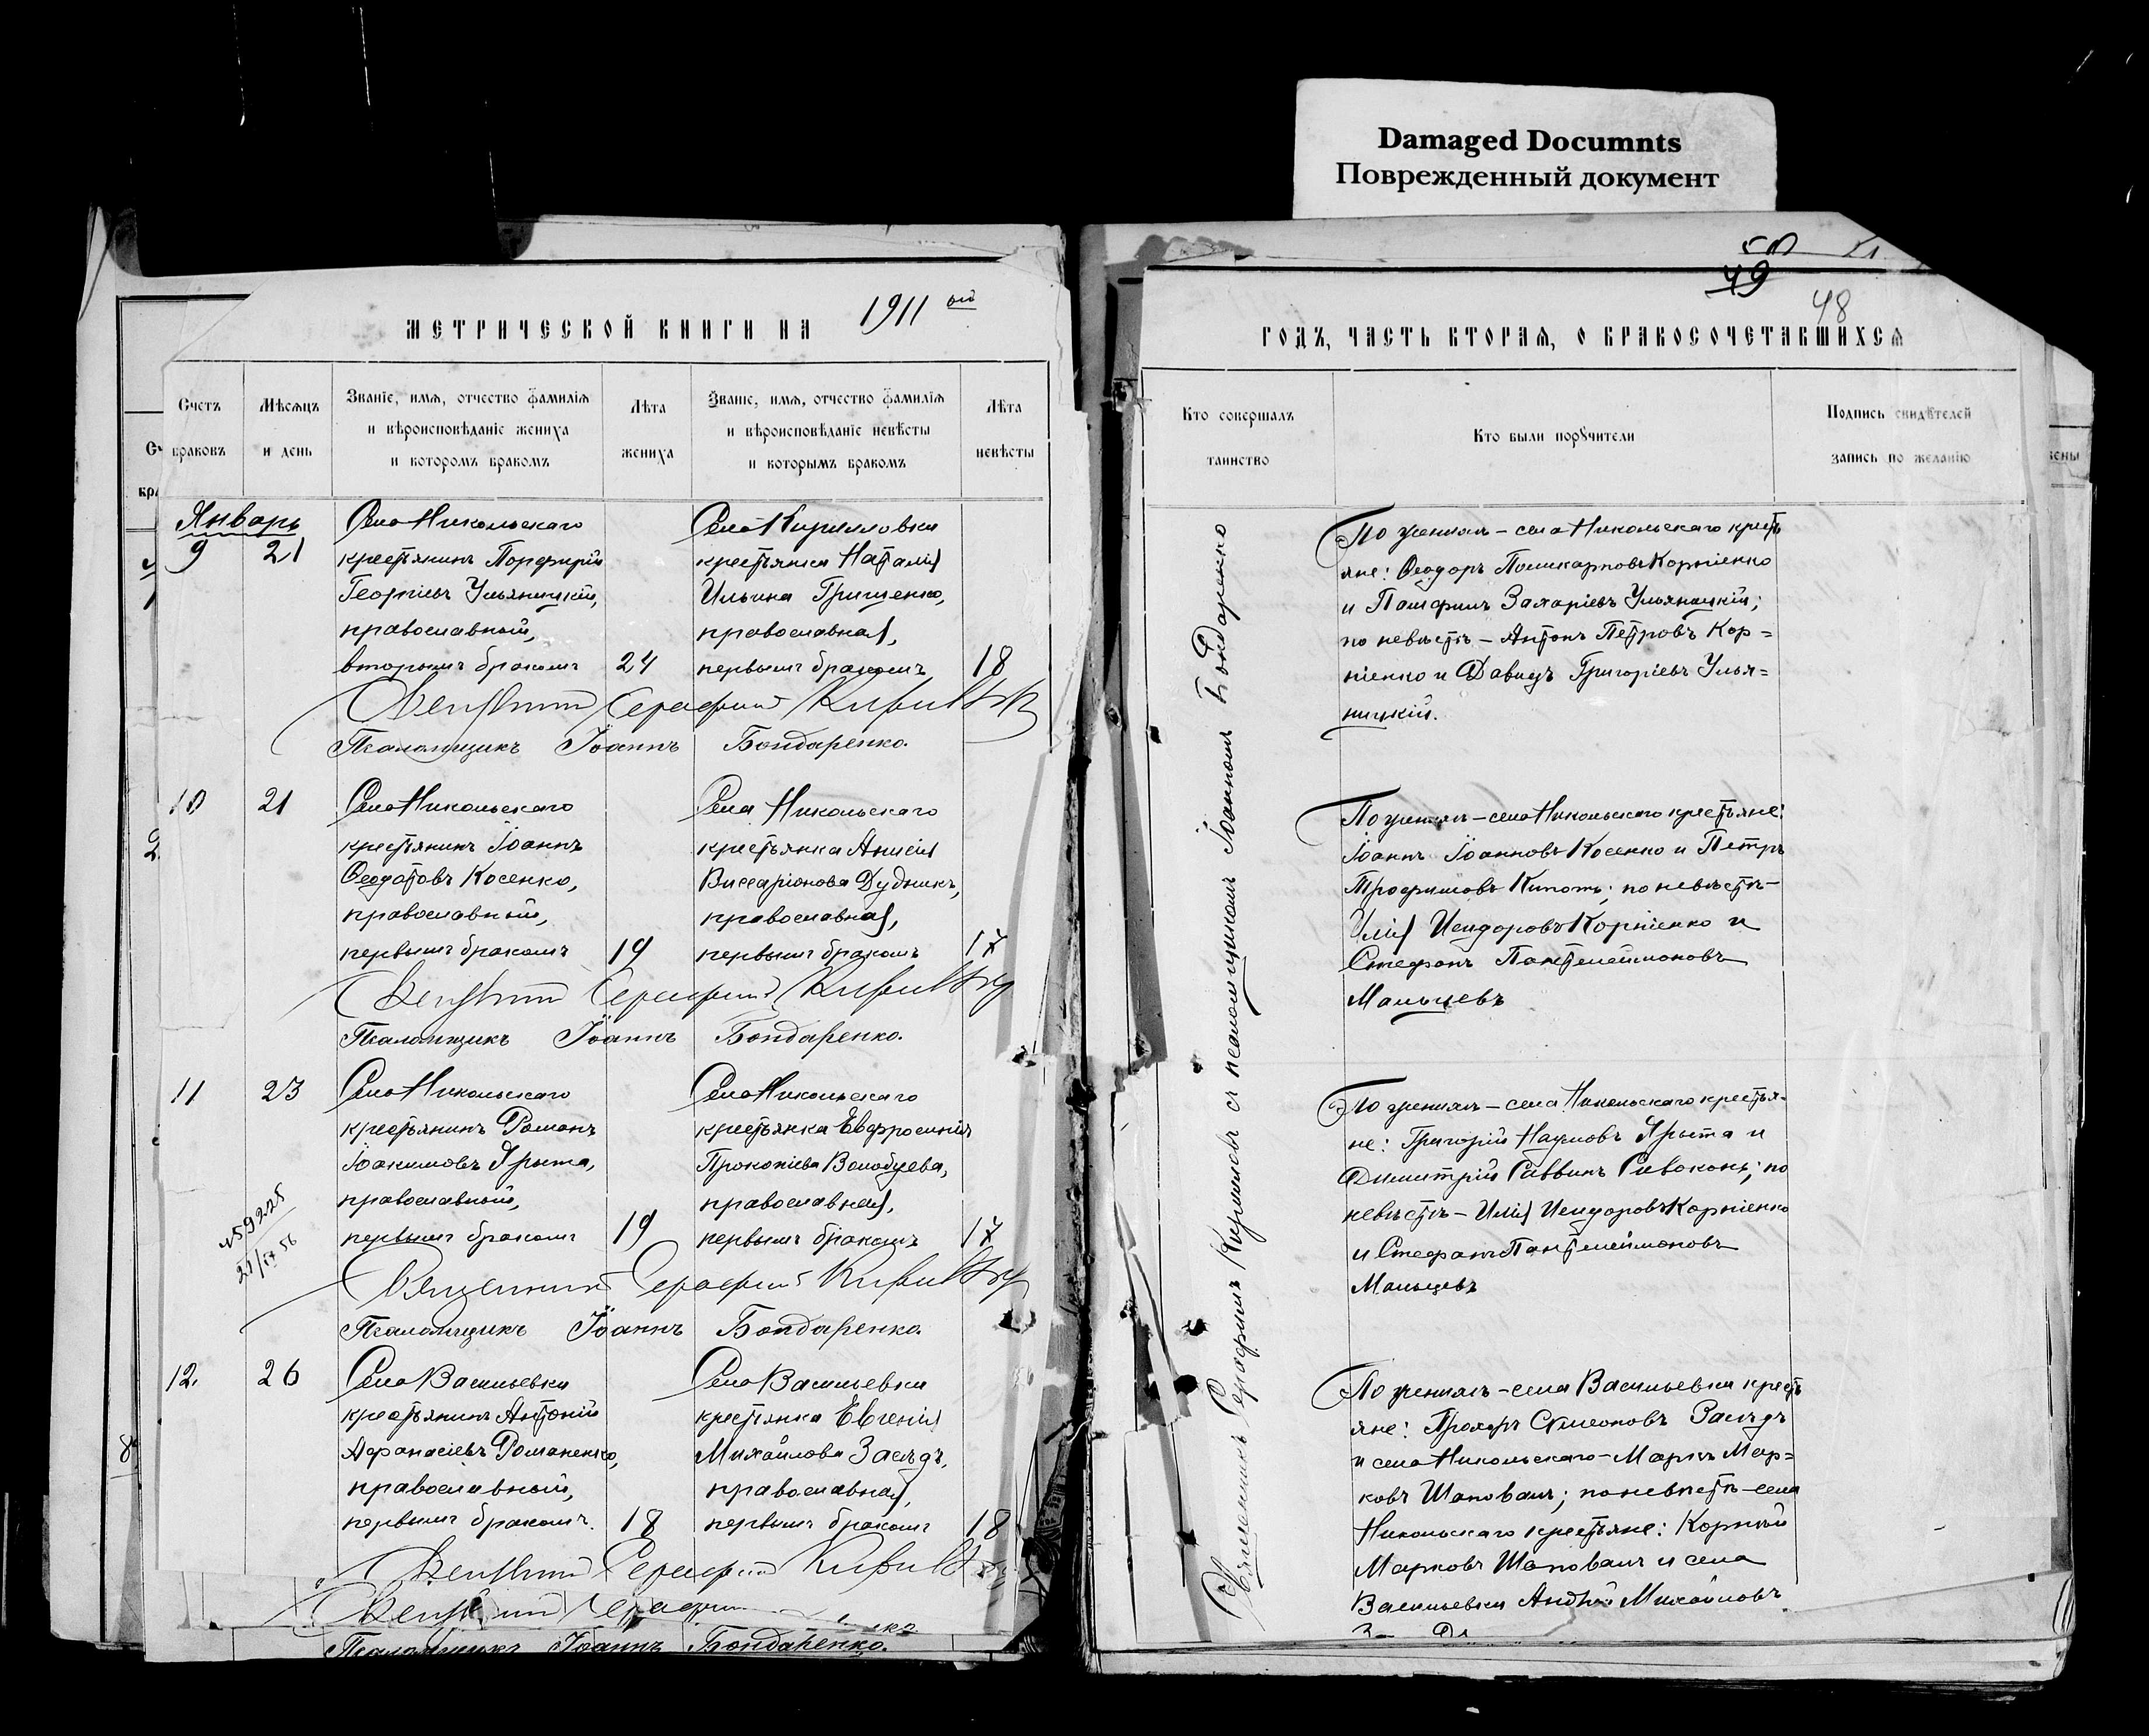 Damaged Documnts
Поврежденный документ
50
49
48
МЕТРИЧЕСКОЙ КНИГИ НА 1911 ый
Счетъ браковъ
Мѣсяцъ и день
Званіе, имя, отчество фамилія
и вѣроисповѣданіе жениха
и которомъ бракомъ
Лѣта
жениха
Званіе, имя, отчество фамилія
и вѣроисповѣданіе невѣсты
и которымъ бракомъ
Лѣта
невѣсты
Январь
9 21
Села Никольскаго
крестьянинъ Порфирій
Георгіевъ Ульяницкій,
православный,
вторымъ бракомъ 24
Села Кирилловки
крестьянка Наталія
Ильина Грищенко,
православная,
первымъ бракомъ 18
Священникъ Серафимъ
Псаломщикъ Іоаннъ Бондаренко.
10 21
Села Никольскаго
крестьянинъ Іоаннъ
Ѳеодотовъ Косенко,
православный,
первымъ бракомъ 19
Села Никольскаго
крестьянка Анисія
Виссаріонова Дудникъ,
православная,
первымъ бракомъ 17
Священникъ Серафимъ
Псаломщикъ Іоаннъ Бондаренко.
11 23
Села Никольскаго
крестьянинъ Романъ
Іоакимовъ Ярыта,
православный,
первымъ бракомъ 19
Села Никольскаго
крестьянка Евфросинія
Прокопіева Волобуева,
православная,
первымъ бракомъ 17
Священникъ Серафимъ
Псаломщикъ Іоаннъ Бондаренко
12. 26
Села Васильевки
крестьянинъ Антоній
Афанасіевъ Романенко,
православный,
первымъ бракомъ. 18
Села Васильевки
крестьянка Евгенія
Михайлова Засѣдъ,
православная,
первымъ бракомъ 18
Священникъ Серафимъ
Псаломщикъ Іоаннъ Бондаренко.
ГОДЪ, ЧАСТЬ ВТОРАЯ, О БРАКОСОЧЕТАВШИХСЯ
Кто совершалъ
таинство
Кто были поручители
Подпись свидѣтелей
запись по желанію
Священникъ Серафимъ съ псаломщикомъ Іоанномъ Бондаренко
По женихѣ – села Никольскаго кресть
яне: Ѳеодоръ Поликарповъ Корніенко
и Памфилъ Захаріевъ Ульяницкій;
по невѣстѣ – Антонъ Петровъ Кор=
ніенко и Давидъ Григоріевъ Улья=
ницкій.
По женихѣ – села Никольскаго крестьяне:
Іоаннъ Іоанновъ Косенко и Петръ
Трофимовъ; по невѣстѣ –
Илія Исидоровъ Корніенко и
Стефанъ Пантелеймоновъ
Мальцевъ
По женихѣ – села Никольскаго крестья-
не: Григорій Наумовъ Ярыта и
Димитрій Саввинъ Сивоконь; по
невѣстѣ – Илія Исидоровъ Корніенко
и Стефанъ Пантелеймоновъ
Мальцевъ
По женихѣ – села Васильевки кресть
яне: Прохоръ Симеоновъ Засѣдъ
и села Никольскаго – Маркъ Мар=
ковъ Шаповалъ; по невѣстѣ – села
Никольскаго крестьяне: Корній
Марковъ Шаповалъ и села
Васильевки Андрей Михайловъ